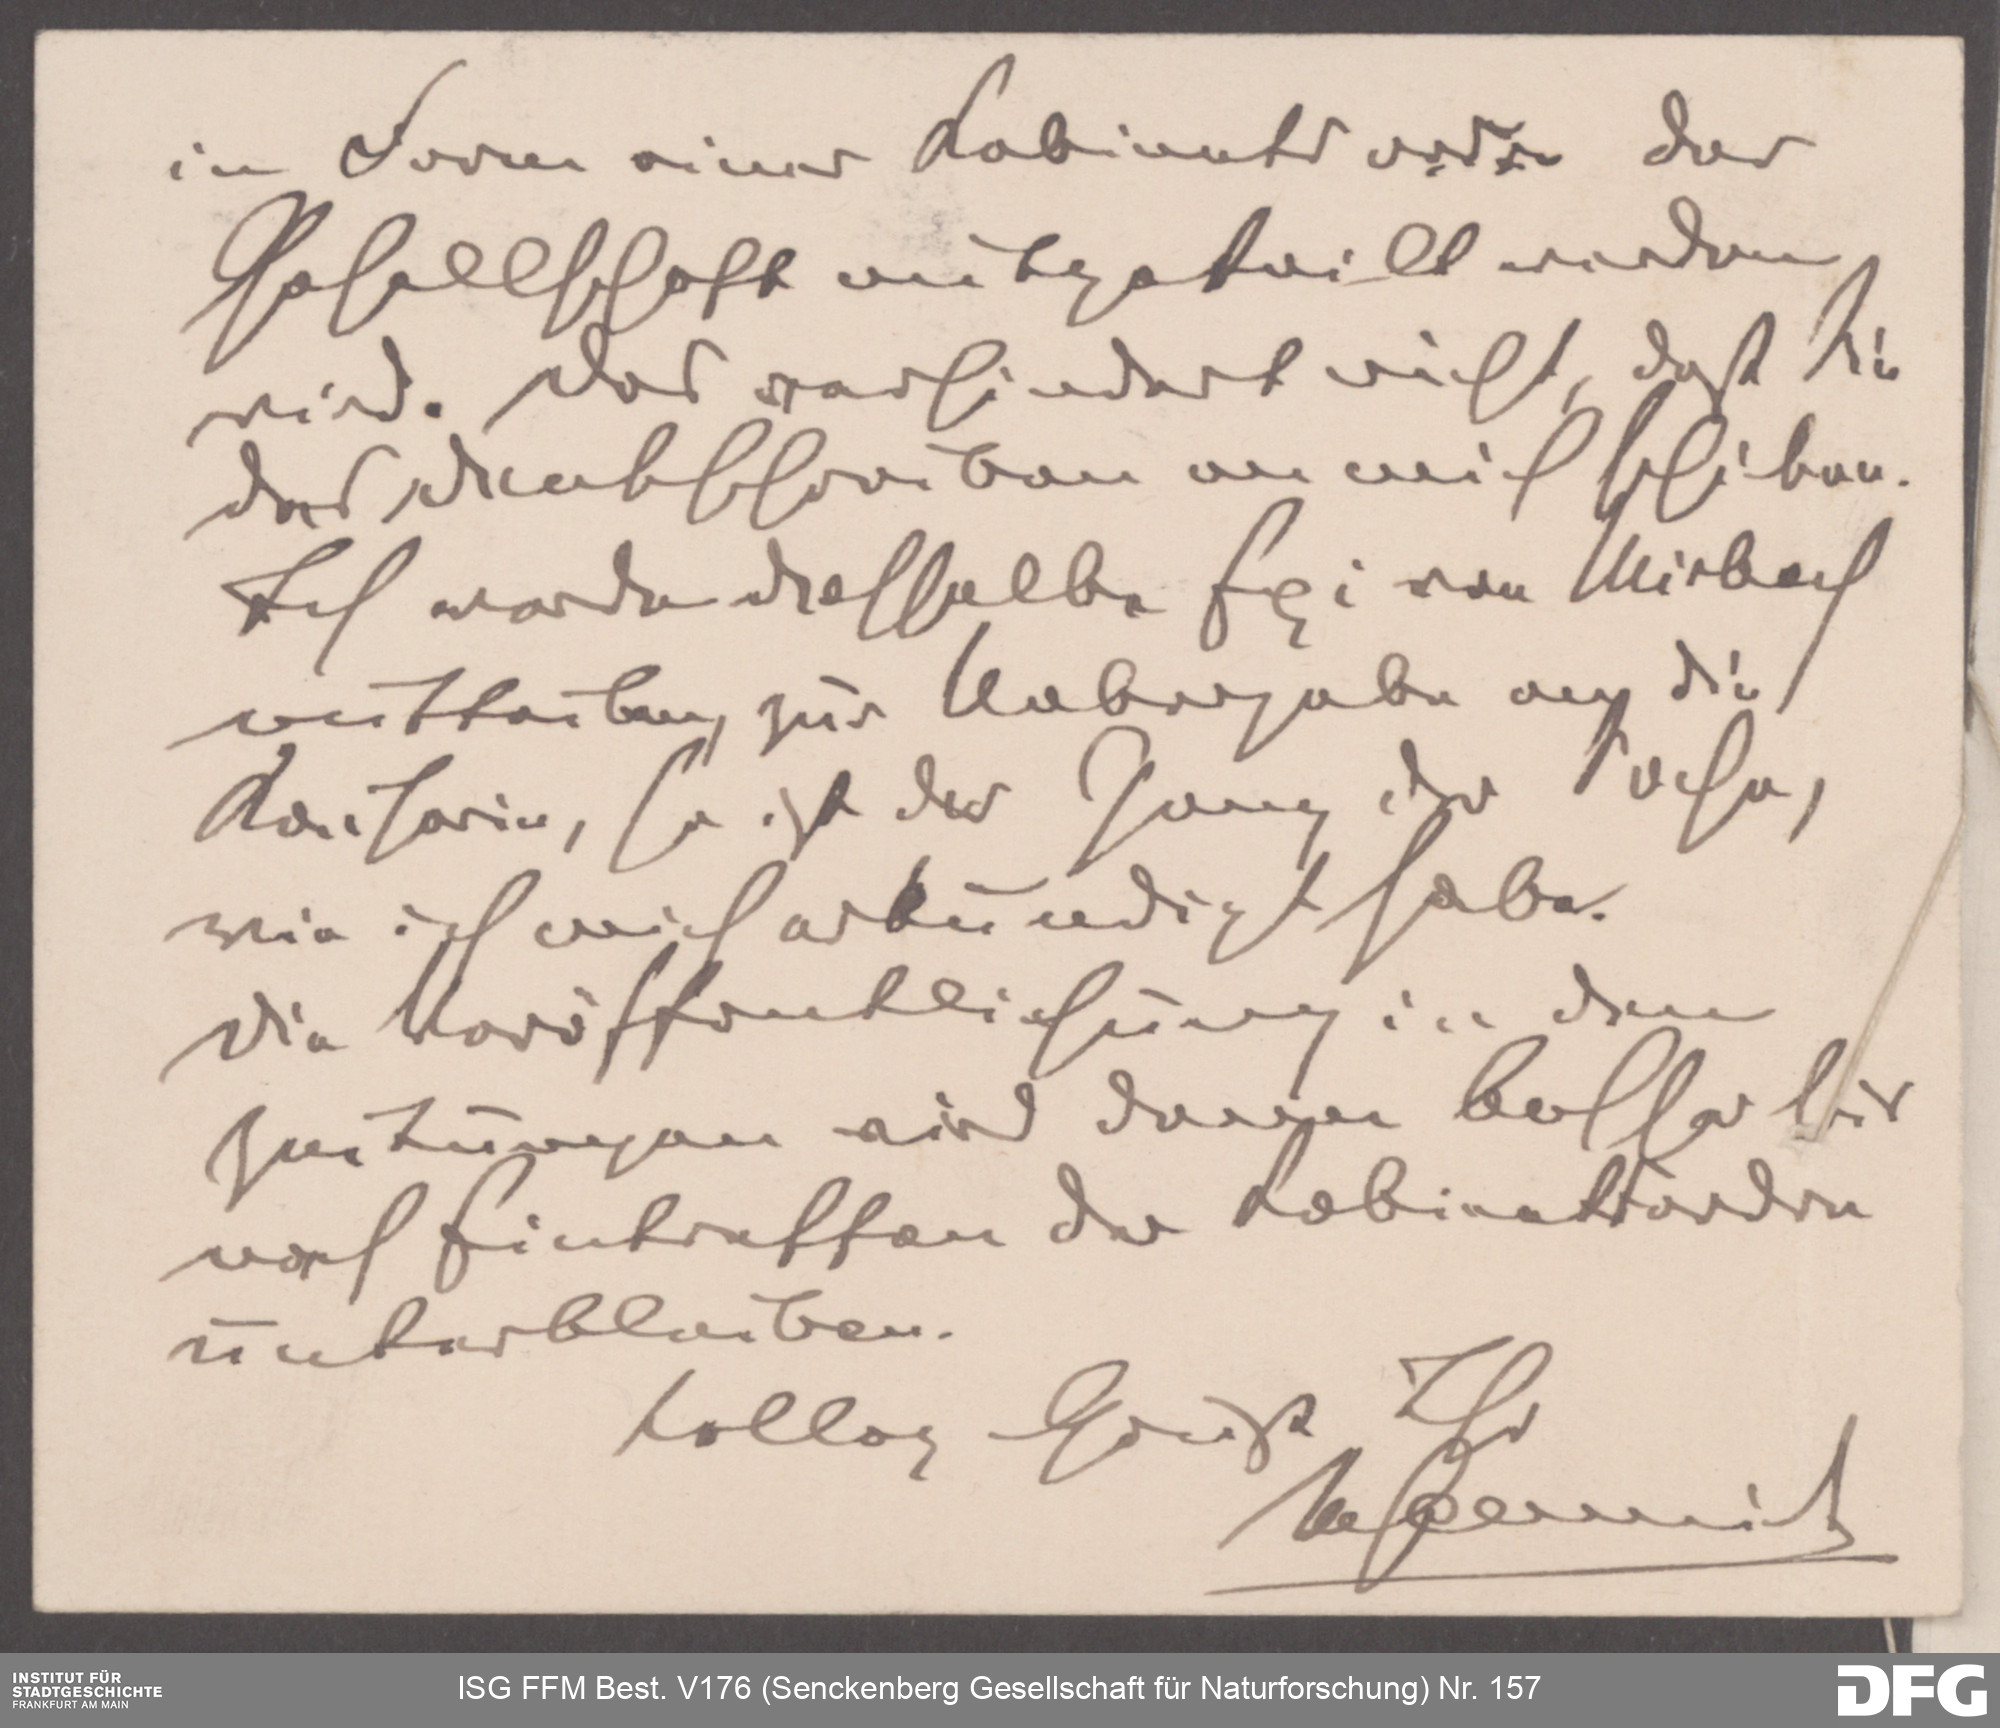 in Form einer Kabinetsordre der
Gesellschaft mitgetheilt werden
wird. Das verhindert nicht, daß Sie
das Dankschreiben an mich schicken.
Ich werde dasselbe Exc von Mirbach
mittheilen, zur Uebergabe an die
Kaiserin, so ist der Gang der Sache,
wie ich mich erkundigt habe.
Die Veröffentlichung in den
Zeitungen wird dann besser bis
nach Eintreffen der Kabinetsordre
unterbleiben.
Kolleg Gruß Ihr
INSTITUT FÜR
STADTGESCHICHTE
FRANKFURT AM MAIN
ISG FFM Best. V176 (Senckenberg Gesellschaft für Naturforschung) Nr. 157
DFG